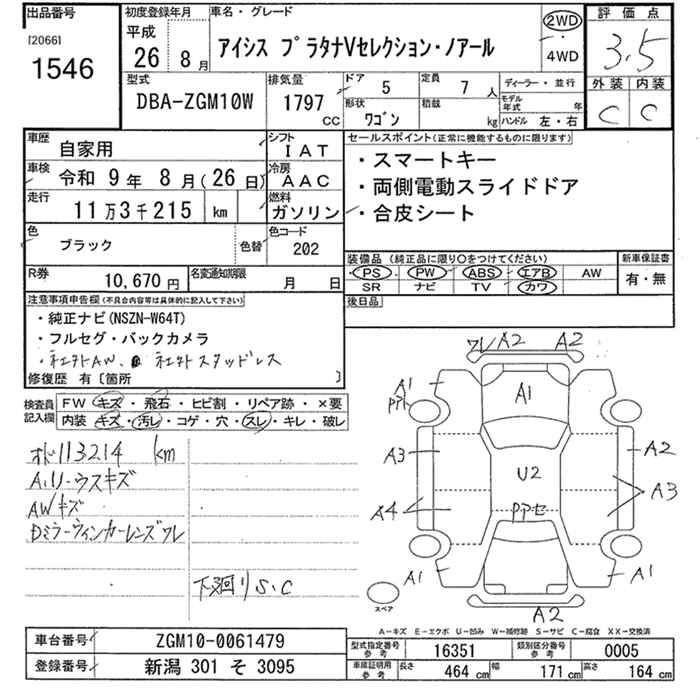 出品番号
[2066]
1546
初度登録年月
平成
26年 8月
車名・グレード
アイシス プラタナVセレクション・ノアール
2WD
・
4WD
評価点
3.5
外装 内装
C C
型式
DBA-ZGM10W
排気量
1797 CC
ドア 5
定員 7人
形状 ワゴン
積載 kg
ディーラー・並行
モデル年式 年
ハンドル 左・右
車歴 自家用
シフト IAT
車検 令和 9年 8月(26日)
冷房 AAC
走行 11万3千215 km
燃料 ガソリン
色 ブラック 色替
色コード 202
R券 10,670円
名変通知期限 月 日
セールスポイント(正常に機能するものに限ります)
・スマートキー
・両側電動スライドドア
・合皮シート
装備品(純正品に限り○をつけてください)
PS PW ABS エアB AW
SR ナビ TV カワ
新車保証書
有・無
後日品
注意事項申告欄(不具合内容等は具体的に記入して下さい)
・純正ナビ(NSZN-W64T)
・フルセグ・バックカメラ
・社外AW、社外スタッドレス
修復歴 有〔箇所 〕
検査員記入欄
FW キズ・飛石・ヒビ割・リペア跡・×要
内装 キズ・汚レ・コゲ・穴・スレ・キレ・破レ
オド113214 km
A.リーウスキズ
AWキズ
Dミラーウィンカーレンズワレ
下廻りS.C
ワレ A2 A2
A1
PP
A1
A3
A2
U2
A4
A3
PPセ
A1
A1
A2
スペア
A-キズ E-エクボ U-凹み W-補修跡 S-サビ C-腐食 XX-交換済
車台番号 ZGM10-0061479
登録番号 新潟 301 そ 3095
型式指定番号参考 16351
類別区分番号参考 0005
車庫証明用参考 長さ 464 cm 幅 171 cm 高さ 164 cm